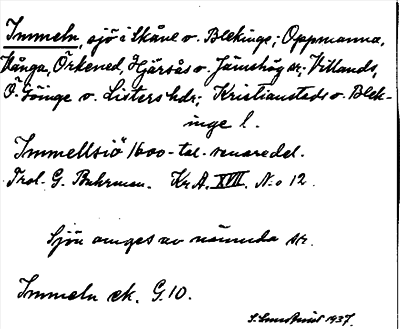 Immeln, sjö i Skåne o. Blekinge; Oppmanna,
Vånga, Örkened, Hjärsås o. Jämshög sr; Villands,
Ö. Göinge o. Listers hdr; Kristianstads o. Blek-
inge l.
Immellsiö 1600-tal. senare del.
Trol. G. Buhrman. Kr.A. XVII. No 12.
Sjön anges av nämnda sr.
Immeln ek. G.10.
1937.